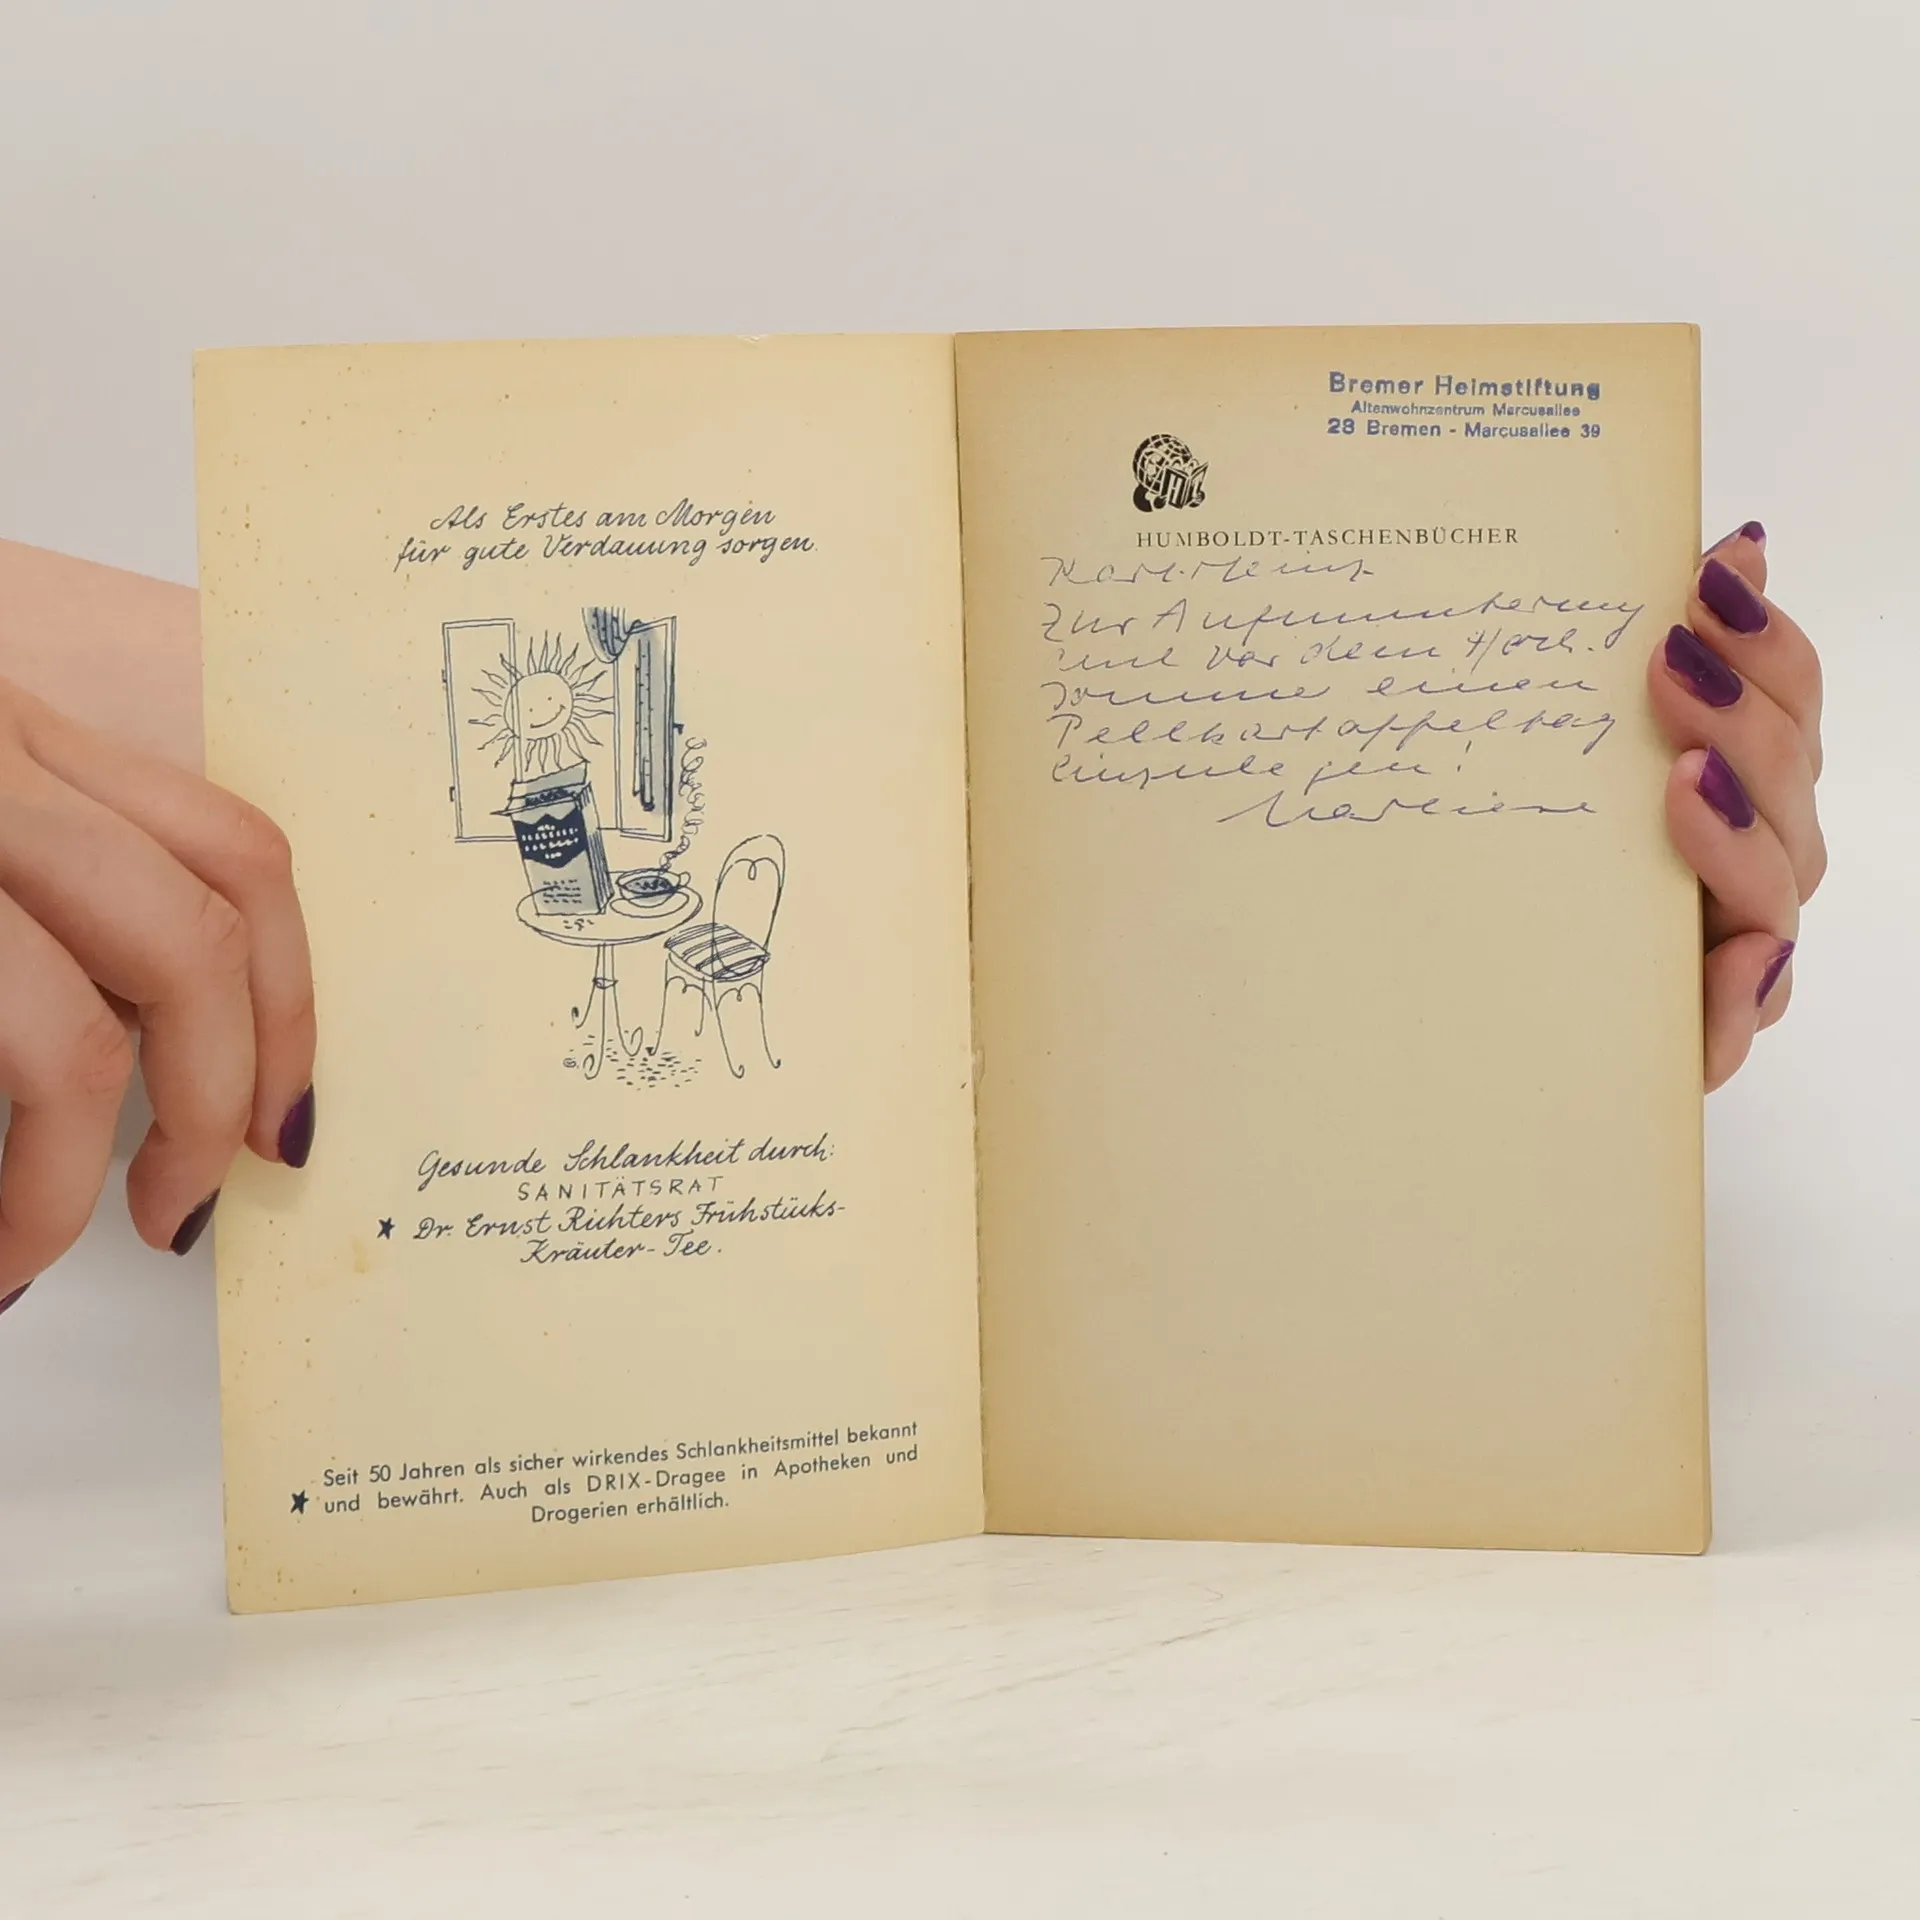 Als Erstes am Morgen
für gute Verdauung sorgen.
Gesunde Schlankheit durch:
SANITÄTSRAT
★ Dr. Ernst Richters Frühstücks-
Kräuter-Tee.
Seit 50 Jahren als sicher wirkendes Schlankheitsmittel bekannt
★ und bewährt. Auch als DRIX-Dragee in Apotheken und
Drogerien erhältlich.
Bremer Heimstiftung
Altenwohnzentrum Marcusallee
28 Bremen - Marcusallee 39
HT
HUMBOLDT-TASCHENBÜCHER
Karl-Heinz
Zur Aufmunterung
und vor dem Hoch-
sommer einen
Pellkartoffeltag
einzulegen!